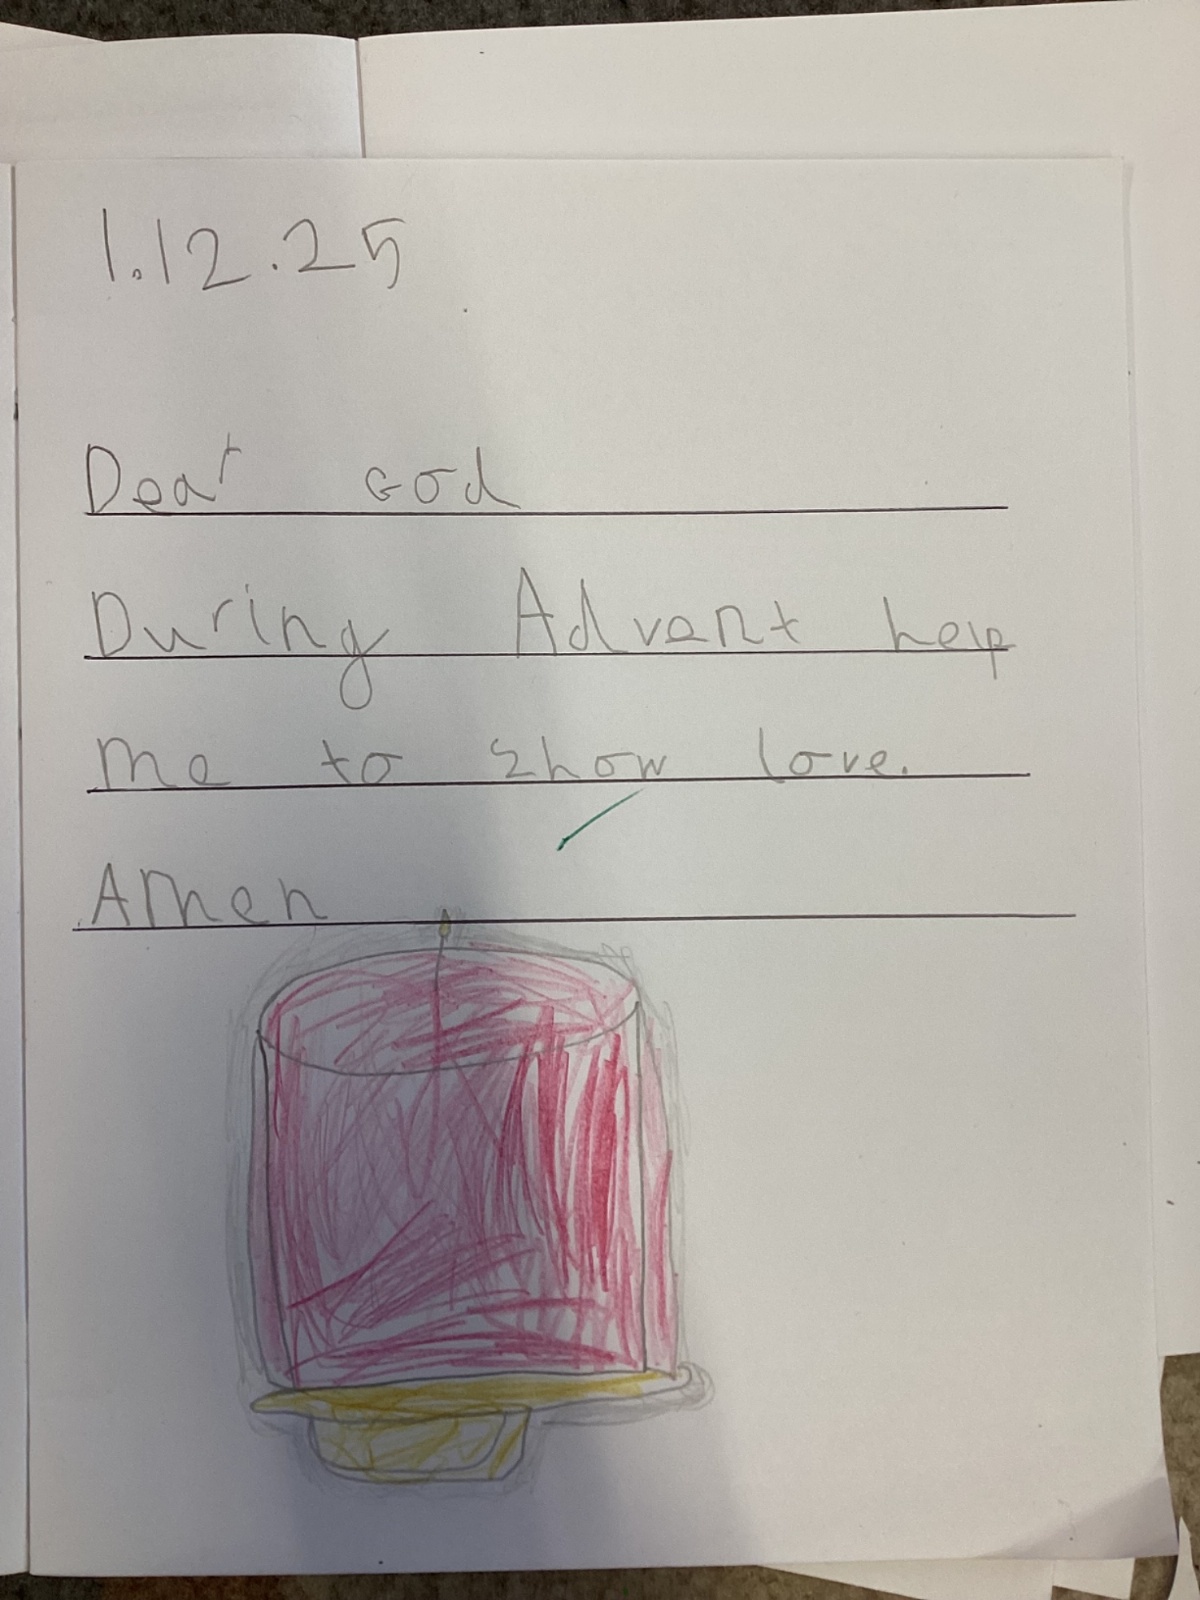 1.12.25
Dear God
During Advent help
me to show love.
Amen